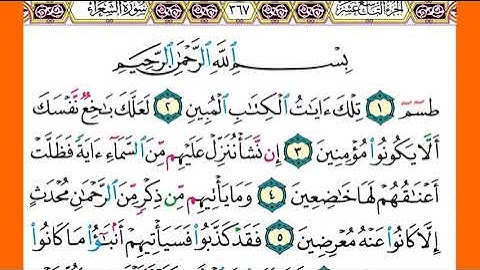 سورة الشعراء ٣٦٧ الجزء التاسع عشر
بِسْمِ ٱللَّهِ ٱلرَّحْمَٰنِ ٱلرَّحِيمِ
طسٓمٓ ١ تِلْكَ ءَايَٰتُ ٱلْكِتَٰبِ ٱلْمُبِينِ ٢ لَعَلَّكَ بَٰخِعٌ نَّفْسَكَ
أَلَّا يَكُونُوا۟ مُؤْمِنِينَ ٣ إِن نَّشَأْ نُنَزِّلْ عَلَيْهِم مِّنَ ٱلسَّمَآءِ ءَايَةً فَظَلَّتْ
أَعْنَٰقُهُمْ لَهَا خَٰضِعِينَ ٤ وَمَا يَأْتِيهِم مِّن ذِكْرٍ مِّنَ ٱلرَّحْمَٰنِ مُحْدَثٍ
إِلَّا كَانُوا۟ عَنْهُ مُعْرِضِينَ ٥ فَقَدْ كَذَّبُوا۟ فَسَيَأْتِيهِمْ أَنۢبَٰٓؤُا۟ مَا كَانُوا۟